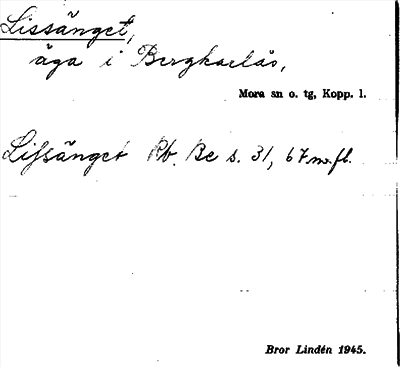 Lissänget,
äga i Bergkarlås,
Mora sn o. tg, Kopp. l.
Lifsänget Rb. Be s. 31, 67 m.fl.
Bror Lindén 1945.